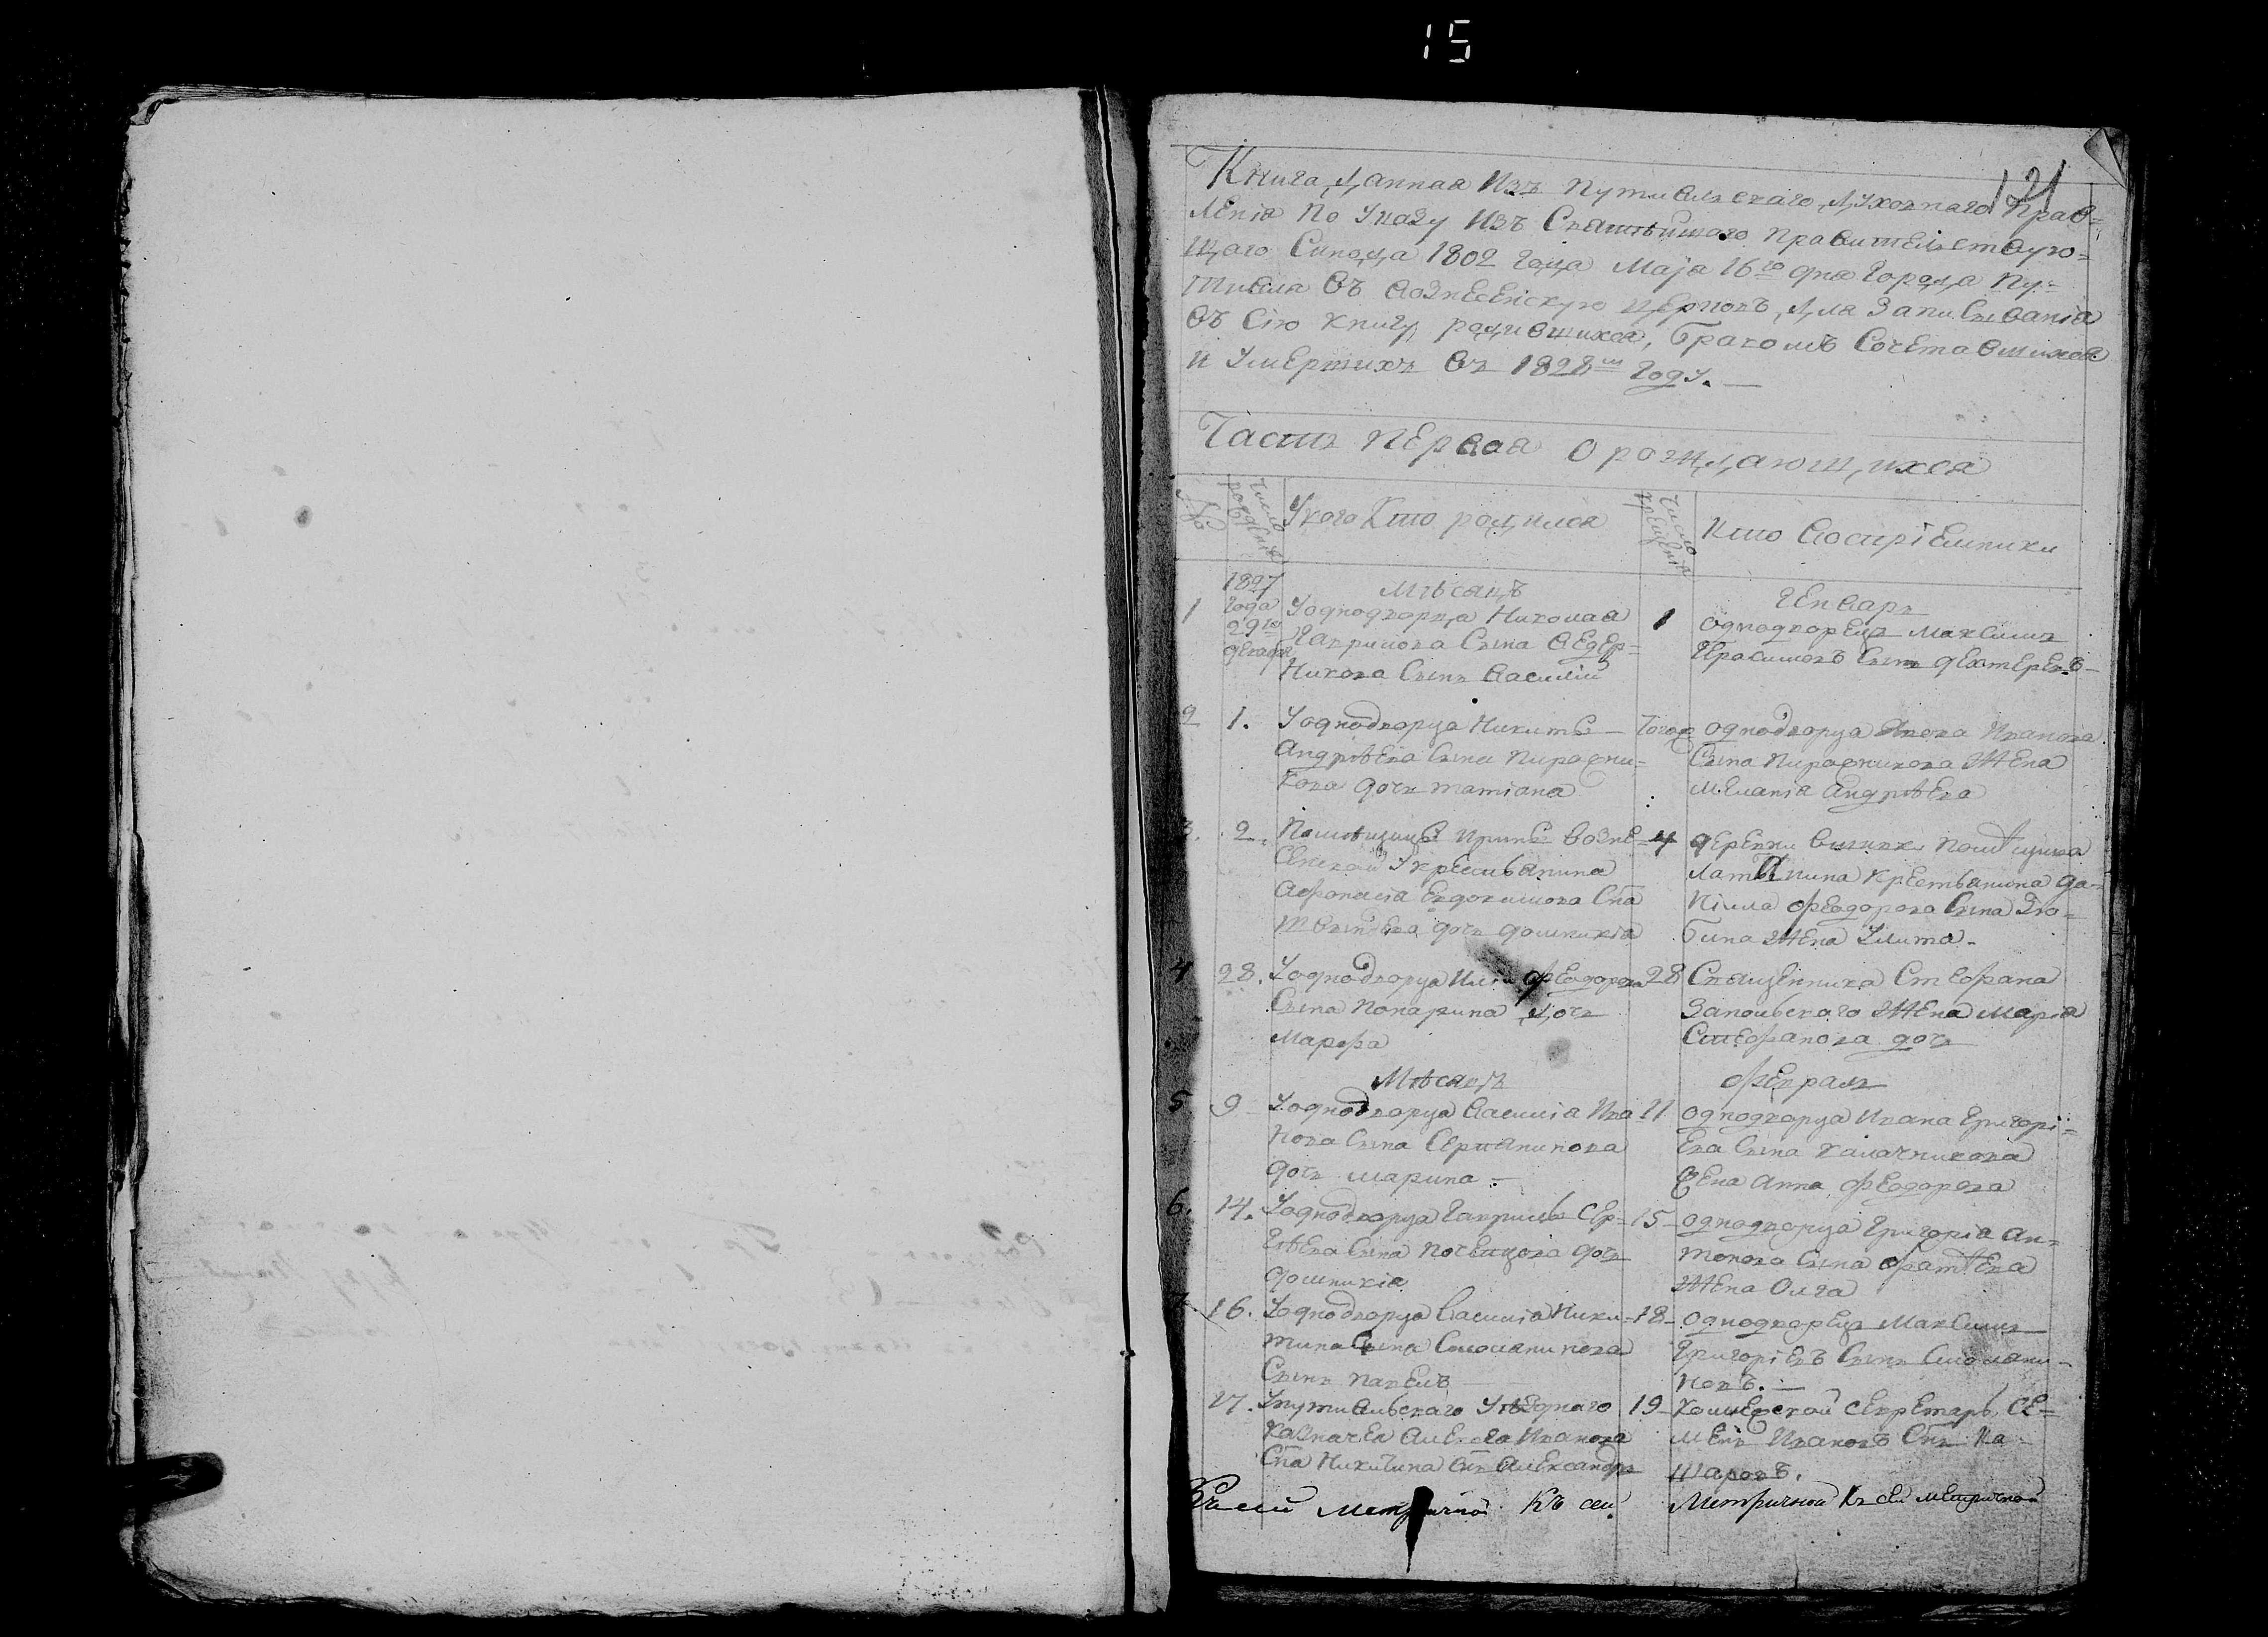 15
121
Книга данная Изъ Путивльскаго духовнаго Прав=
ленія По Указу Изъ Святѣйшаго правительствую=
щаго Синода 1802 года Маја 16го дня города Пу=
тивля въ вознесенскую церковь, для Записыванія
въ сію книгу родившихся, Бракомъ Сочетавшихся
и Умершихъ въ 1828м году.
Часть первая о рождающихся
№
Число рожденія
У кого Кто родился
Число крещенія
Кто воспріемники
Мѣсяцъ Генварь
1 1827 года 29го декабр
У однодворца Николая
Гаврилова Сына Федер=
никова Сынъ василій
1
однодворецъ Максимъ
Герасимовъ Сынъ дехтеревъ
2 1.
У однодворца Никиты
андрѣева Сына Пирожни=
кова дочь татіана
Тогож
однодворца Якова Иванова
Сына Пирожникова Жена
меланія андрѣева
3. 2.
Помѣщицы Ирины возне=
сенской У крестьянина
афонасія Евдокимова Сна
дочь домникія
4
деревни помѣщика
крестьянина да=
ніила феодорова Сына
Жена Улита
4 28.
У однодворца Иліи феодорова
Сына Понарина дочь
Марфа
28
Священника Стефана
Запольскаго Жена Марія
Стефанова дочь
Мѣсяцъ февраль
5 9
У однодворца василія Ива
нова Сына
дочь марина
11
однодворца Ивана Григорі=
ева Сына калачникова
Жена Анна феодорова
6. 14.
У однодворца Гаврилы Сер=
гѣева Сына Почепцова дочь
домникія
15
однодворца Григорія ан=
тонова Сына фатѣева
Жена Олга
16.
У однодворца василія Ники=
тина Сына
Сынъ павелъ
18
однодворецъ Максимъ
Григоріевъ Сынъ
новъ.
17.
У путивльскаго Уѣзднаго
казначея Иванова
Сна Никитина Снъ александръ
19
Коллежской Секретарь Се=
менъ Ивановъ Снъ Ка
шаровъ.
Къ сей Метричной Къ сей Метричной Къ сей метричной